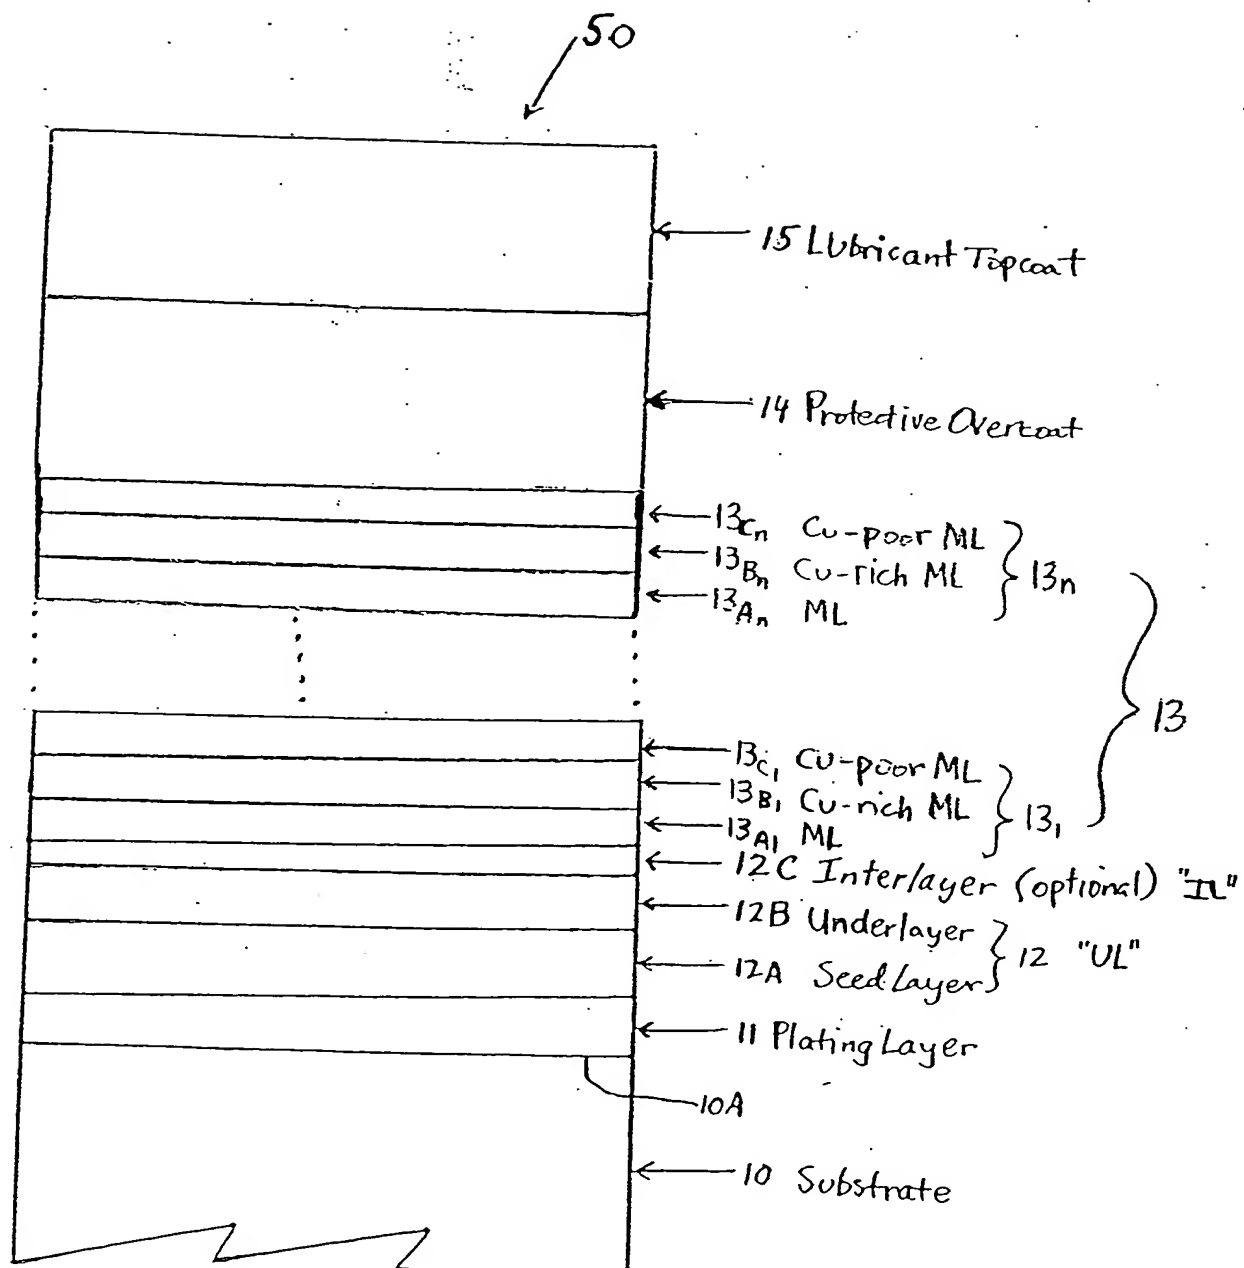 50
15 Lubricant Topcoat
14 Protective Overcoat
13Cn Cu-poor ML
13Bn Cu-rich ML
13An ML
13n
13
13C1 Cu-poor ML
13B1 Cu-rich ML
13A1 ML
131
12C Interlayer (optional) "IL"
12B Underlayer
12A Seed Layer
12 "UL"
11 Plating Layer
10A
10 Substrate